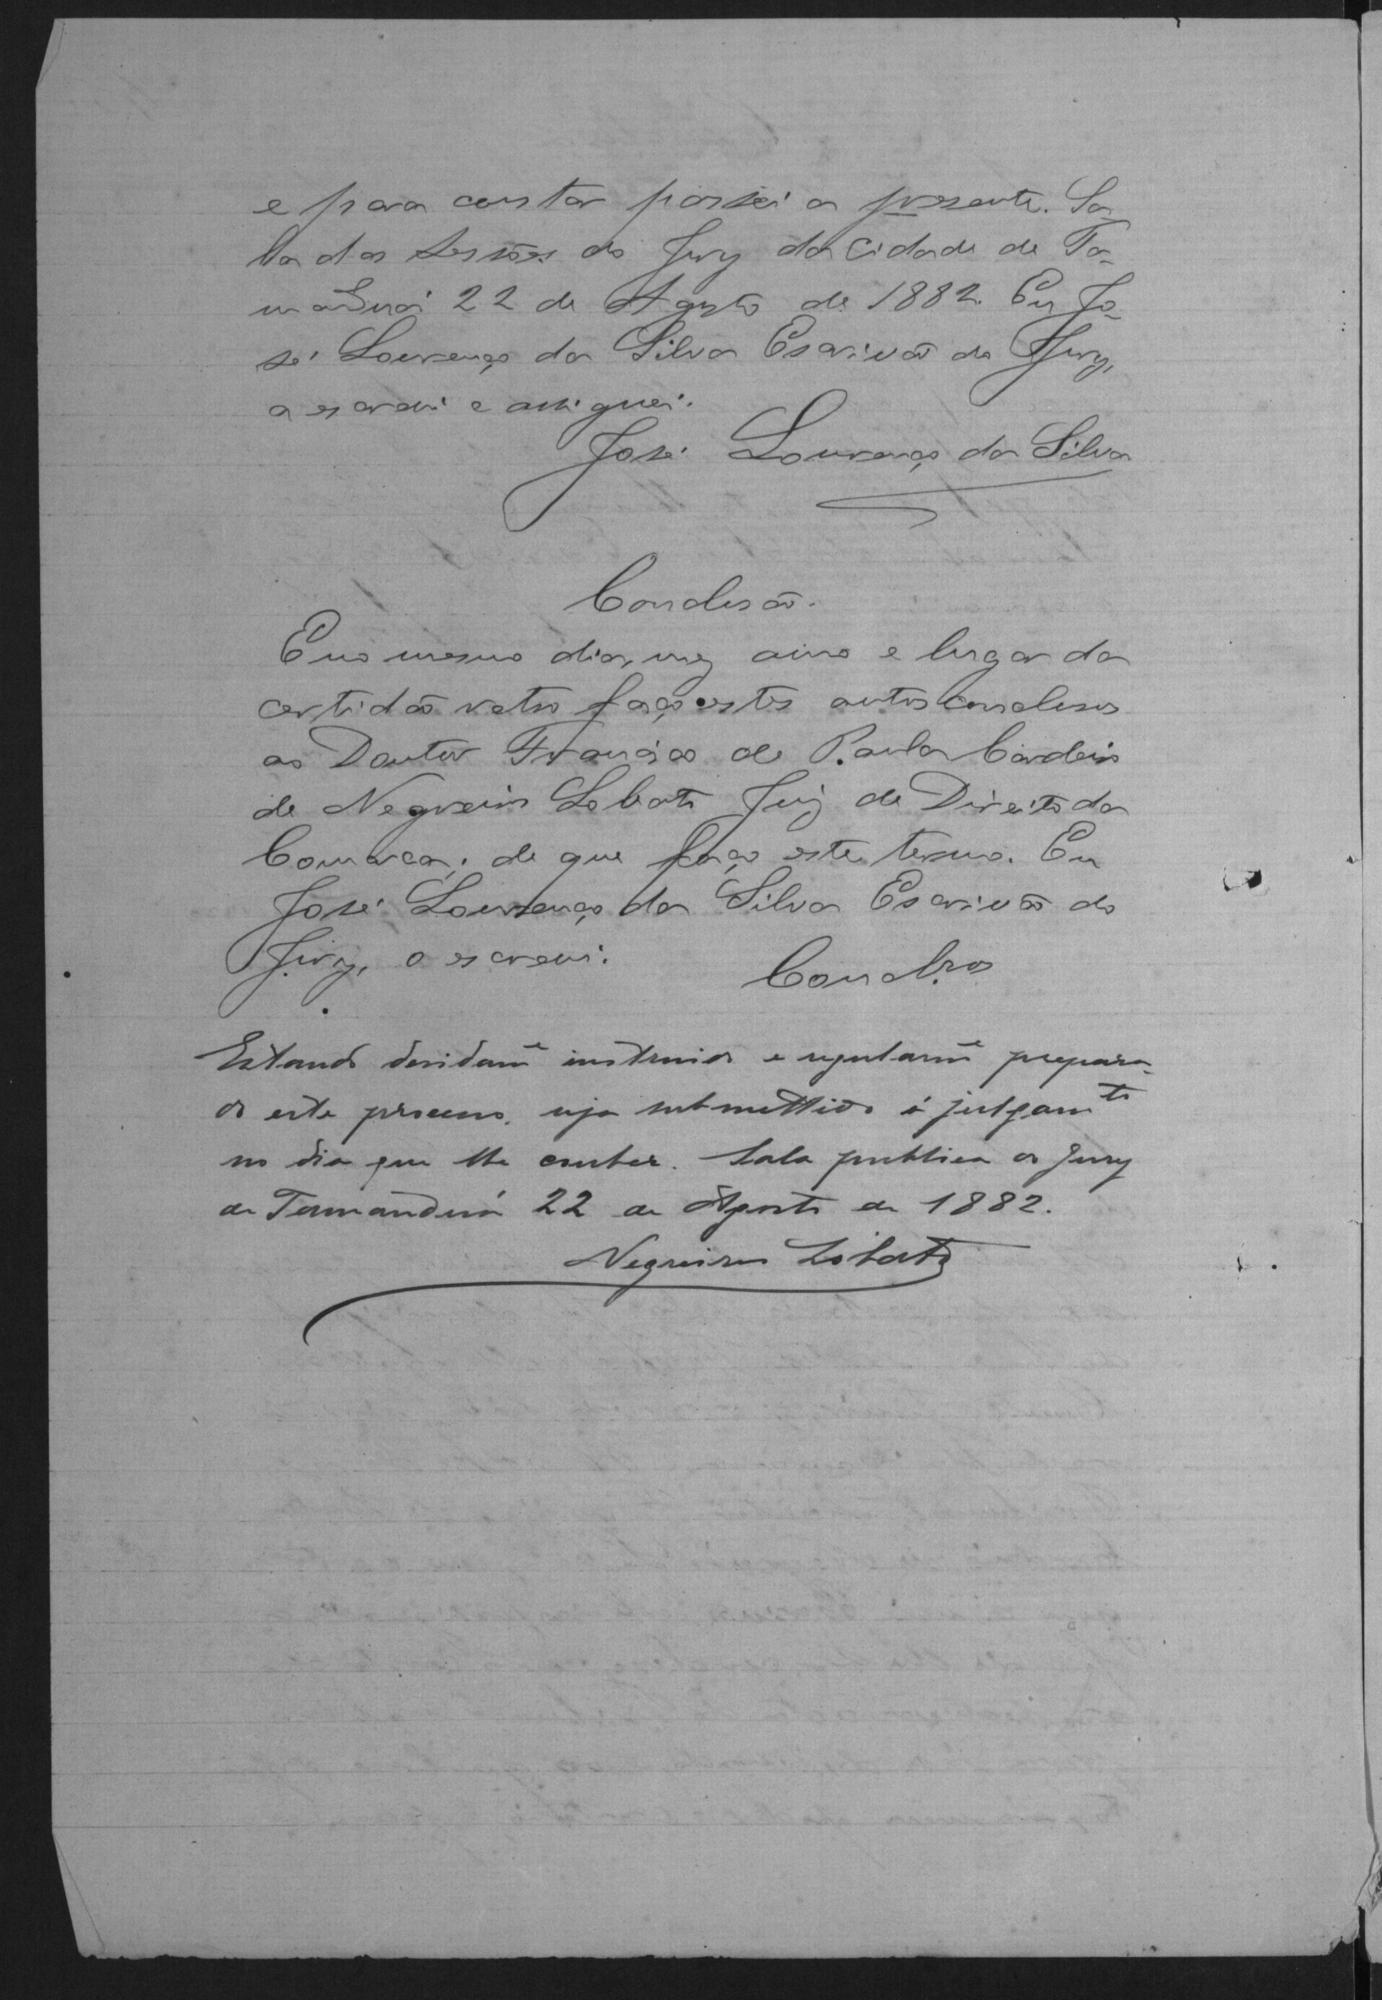 e para constar passei a presente. Sa-
la das Sessões do Jury da Cidade de Ta-
manduá 22 de Agosto de 1882. Eu Jo-
sé Lourenço da Silva Escrivão do Jury,
a escrevi e assignei.
José Lourenço da Silva
Conclusão.
E no mesmo dia, mez anno e lugar da
certidão retro faço estes autos conclusos
ao Doutor Francisco de Paula Cordeiro
de Negreiros Lobato Juiz de Direito da
Comarca; de que faço este termo. Eu
José Lourenço da Silva Escrivão do
Jury, o escrevi.
Concl.ᵒˢ
Estando devidamᵉ instruido e regularmᵉ prepara-
do este processo, seja submettido á julgamᵗᵒ
no dia que lhe couber. Sala publica do Jury
de Tamanduá 22 de Agosto de 1882.
Negreiros Lobato